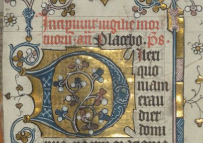 Incipiunt vigilie mor
tuorum. an Placebo. ps.
Dilexi
quo
niam
exau
diet
domi